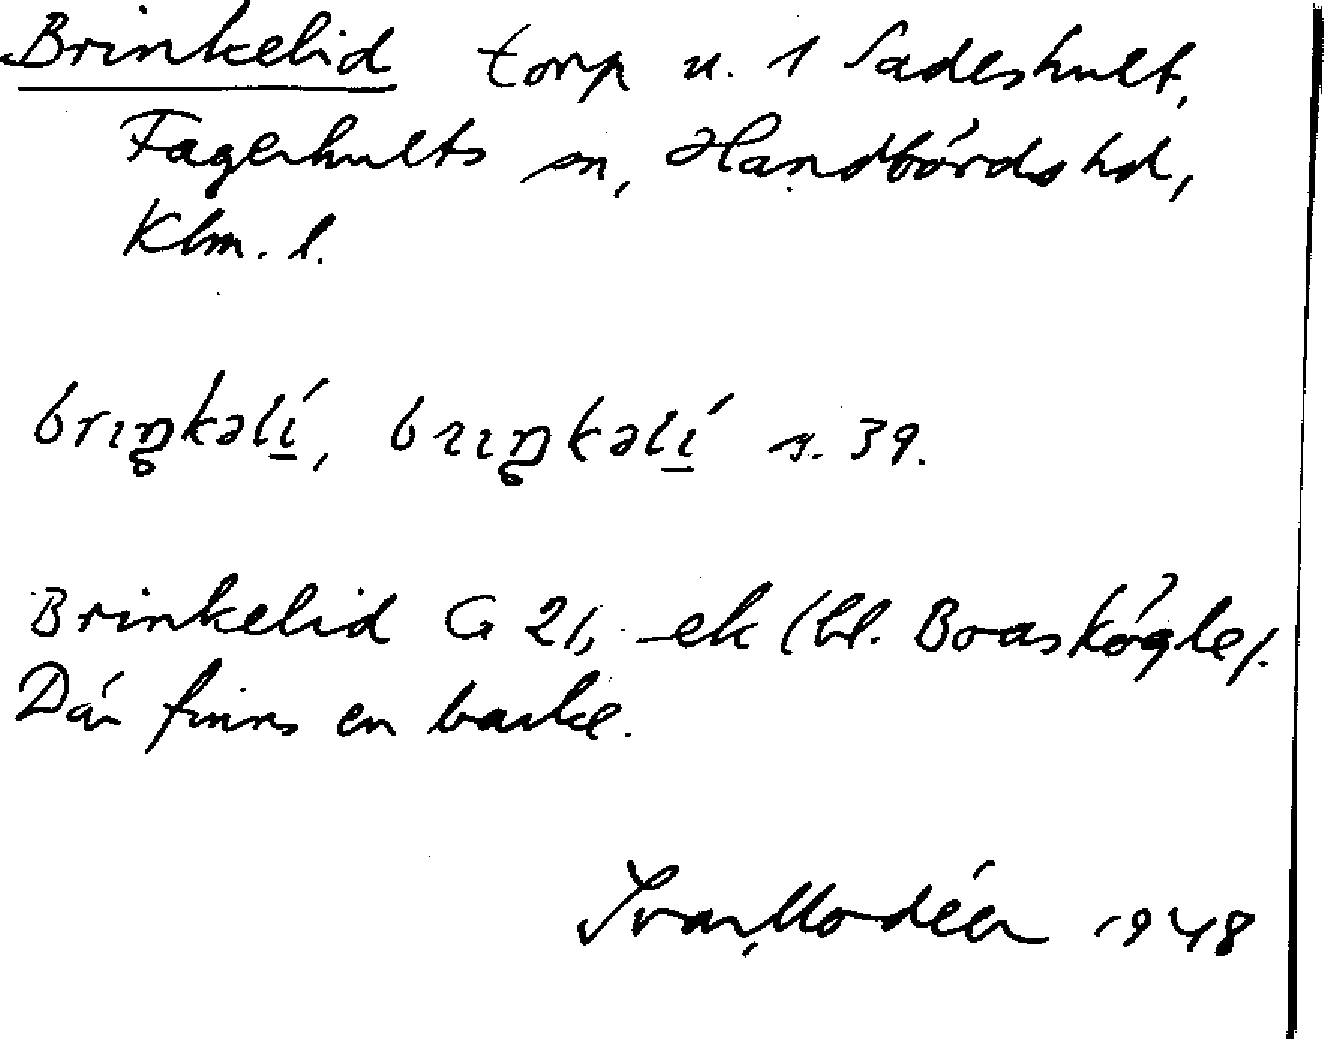 Brinkelid torp u. 1 Sadeshult,
Fagerhults sn, Handbörds hd,
Klm. l.
briŋkəlí, bɹiŋkəlí s. 39.
Brinkelid G 21, -ek (bl. Boaskögle).
Där finns en backe.
Ivar Modéer 1948